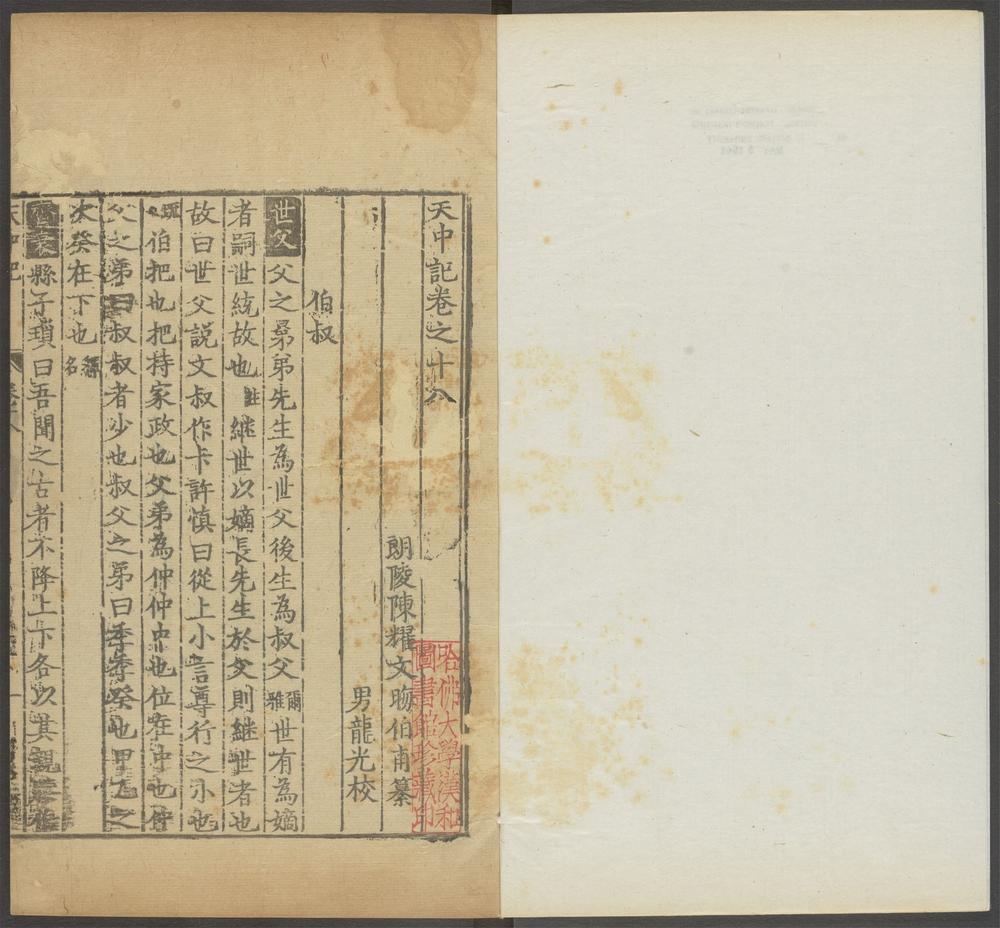 天中記卷之十八
朗陵陳耀文晦伯甫纂
男龍光校
伯叔
世父父之晜弟先生為世父後生為叔父爾雅世有為嫡
者嗣世統故也註継世以嫡長先生於父則継世者也
故曰世父説文叔作尗許慎曰從上小言尊行之小也
伯把也把持家政也父弟為仲仲中也位在中也仲
父之弟曰叔叔者少也叔父之弟曰季季癸也甲乙之
次癸在下也釋名
縣子瑣曰吾聞之古者不降上下各以其親
天中記
哈佛大學漢和
圖書館珍藏印